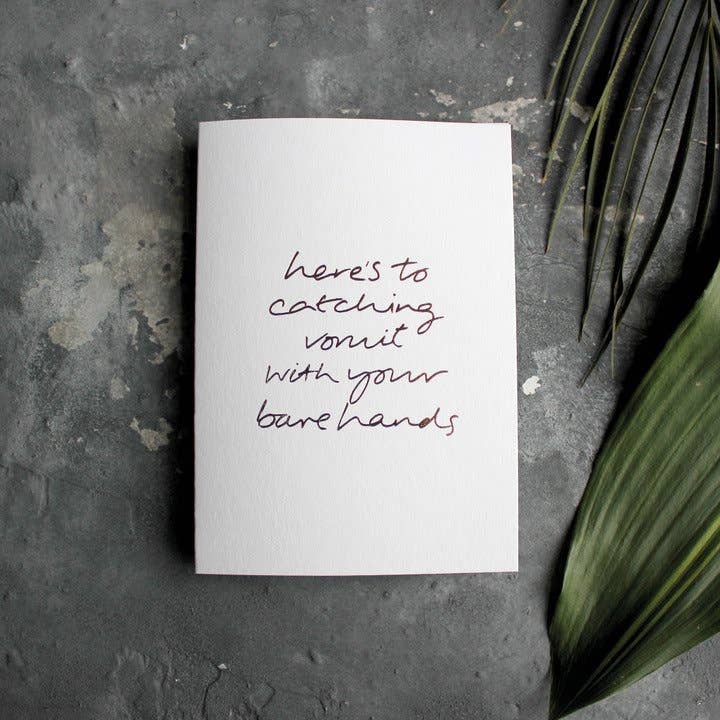 here's to
catching
vomit
with your
bare hands